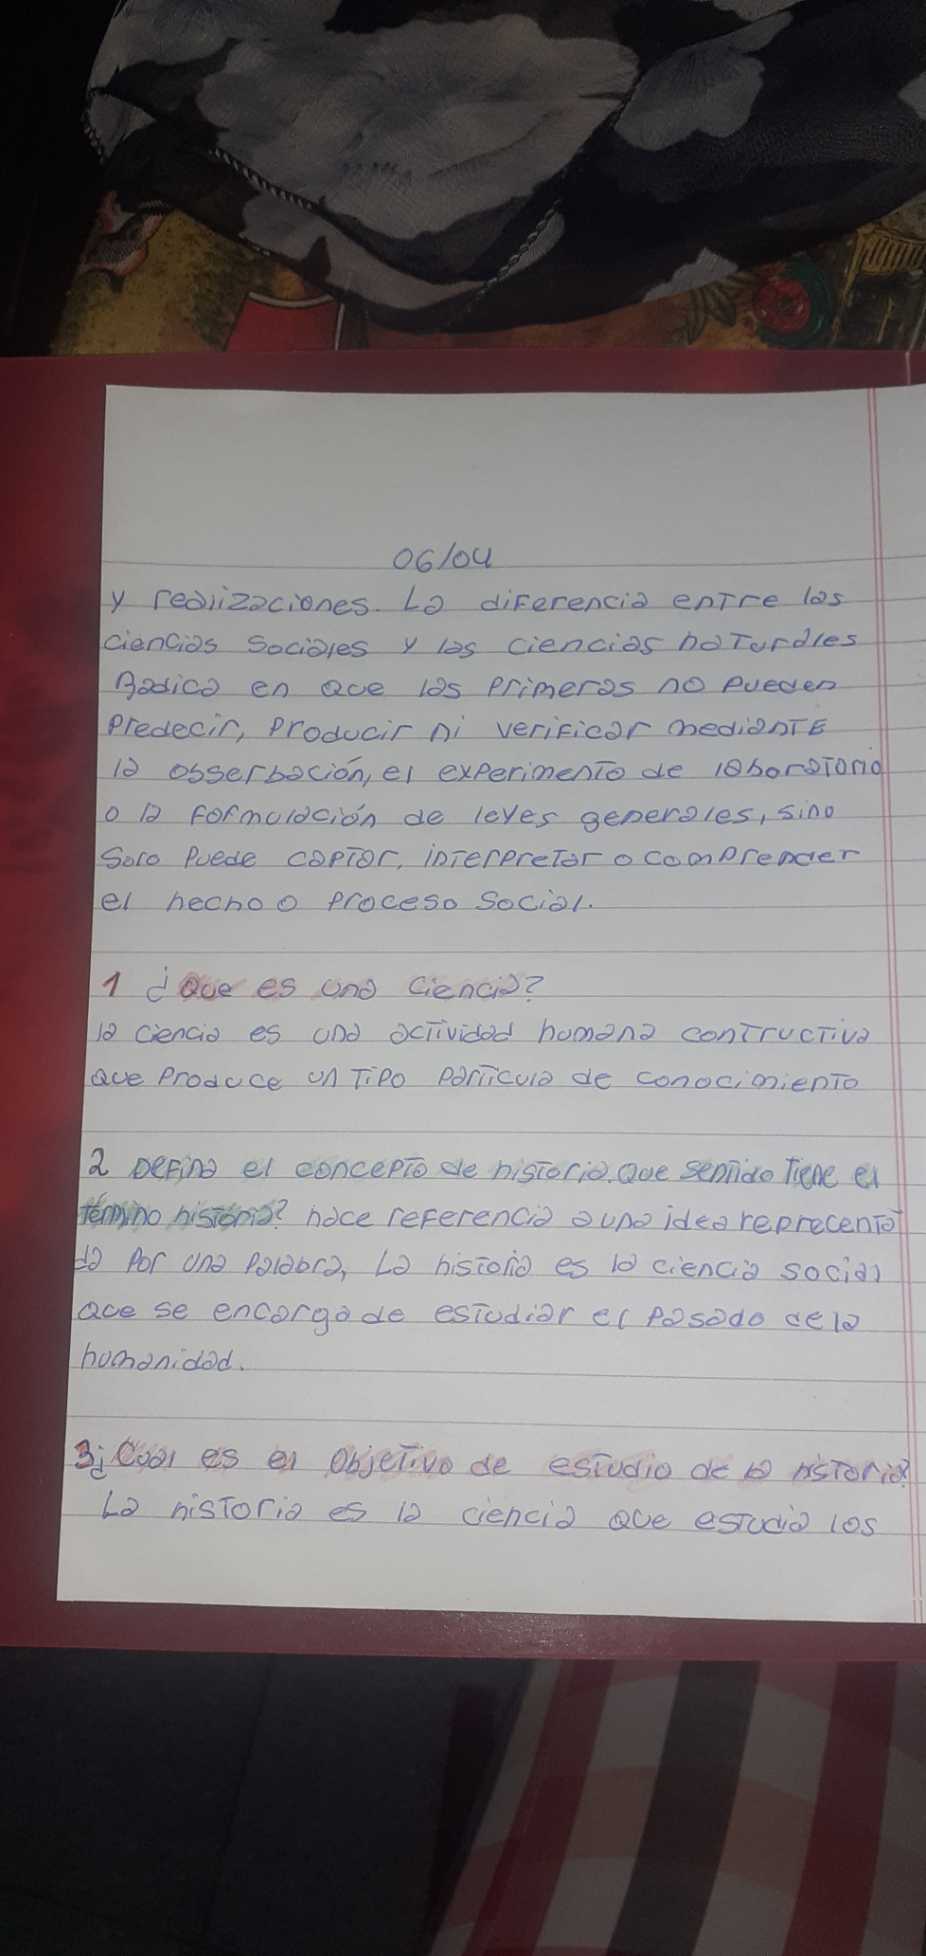 06/04
y realizaciones. La diferencia entre las
ciencias sociales y las ciencias naturales
Radica en que las primeras no pueden
predecir, producir ni verificar mediante
la obserbación, el experimento de laboratorio
o la formulación de leyes generales, sino
solo puede captar, interpretar o comprender
el hecho o proceso social.
1 ¿Que es una ciencia?
la ciencia es una actividad humana contructiva
que produce un tipo particula de conocimiento
2 Defina el concepto de historia. Que sentido tiene el
término historia? hace referencia a una idea reprecenta
da por una palabra, La historia es la ciencia social
que se encarga de estudiar el pasado de la
humanidad.
3¿Cual es el objetivo de estudio de la historia?
La historia es la ciencia que estudia los